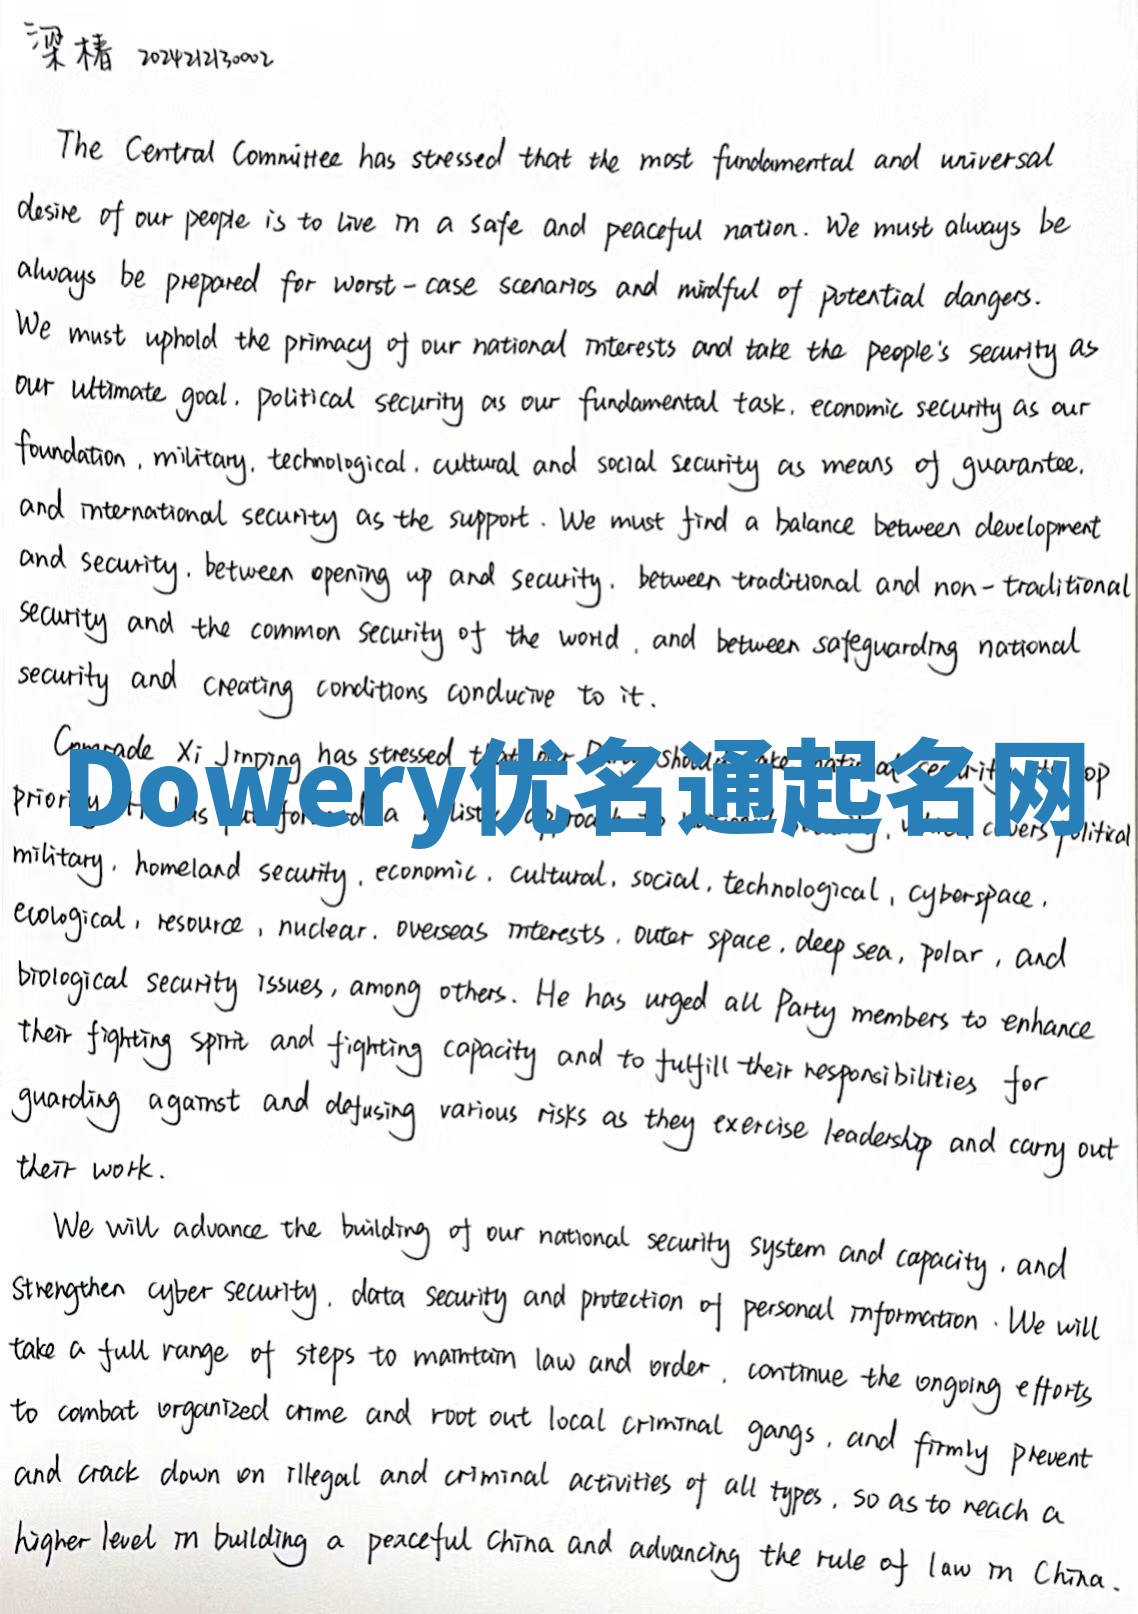 梁椿 2024212130002
The Central Committee has stressed that the most fundamental and universal
desire of our people is to live in a safe and peaceful nation. We must always be
always be prepared for worst-case scenarios and mindful of potential dangers.
We must uphold the primacy of our national interests and take the people's security as
our ultimate goal, political security as our fundamental task, economic security as our
foundation, military, technological, cultural and social security as means of guarantee,
and international security as the support. We must find a balance between development
and security, between opening up and security, between traditional and non-traditional
security and the common security of the world, and between safeguarding national
security and creating conditions conducive to it.
Comrade Xi Jinping has stressed that our Party should take national security its top
Dowery优名通起名网
priority. He has put forward a holistic approach to national security, which covers political
military, homeland security, economic, cultural, social, technological, cyberspace,
ecological, resource, nuclear, overseas interests, outer space, deep sea, polar, and
biological security issues, among others. He has urged all Party members to enhance
their fighting spirit and fighting capacity and to fulfill their responsibilities for
guarding against and defusing various risks as they exercise leadership and carry out
their work.
We will advance the building of our national security system and capacity, and
strengthen cyber security, data security and protection of personal information. We will
take a full range of steps to maintain law and order, continue the ongoing efforts
to combat organized crime and root out local criminal gangs, and firmly prevent
and crack down on illegal and criminal activities of all types, so as to reach a
higher level in building a peaceful China and advancing the rule of law in China.